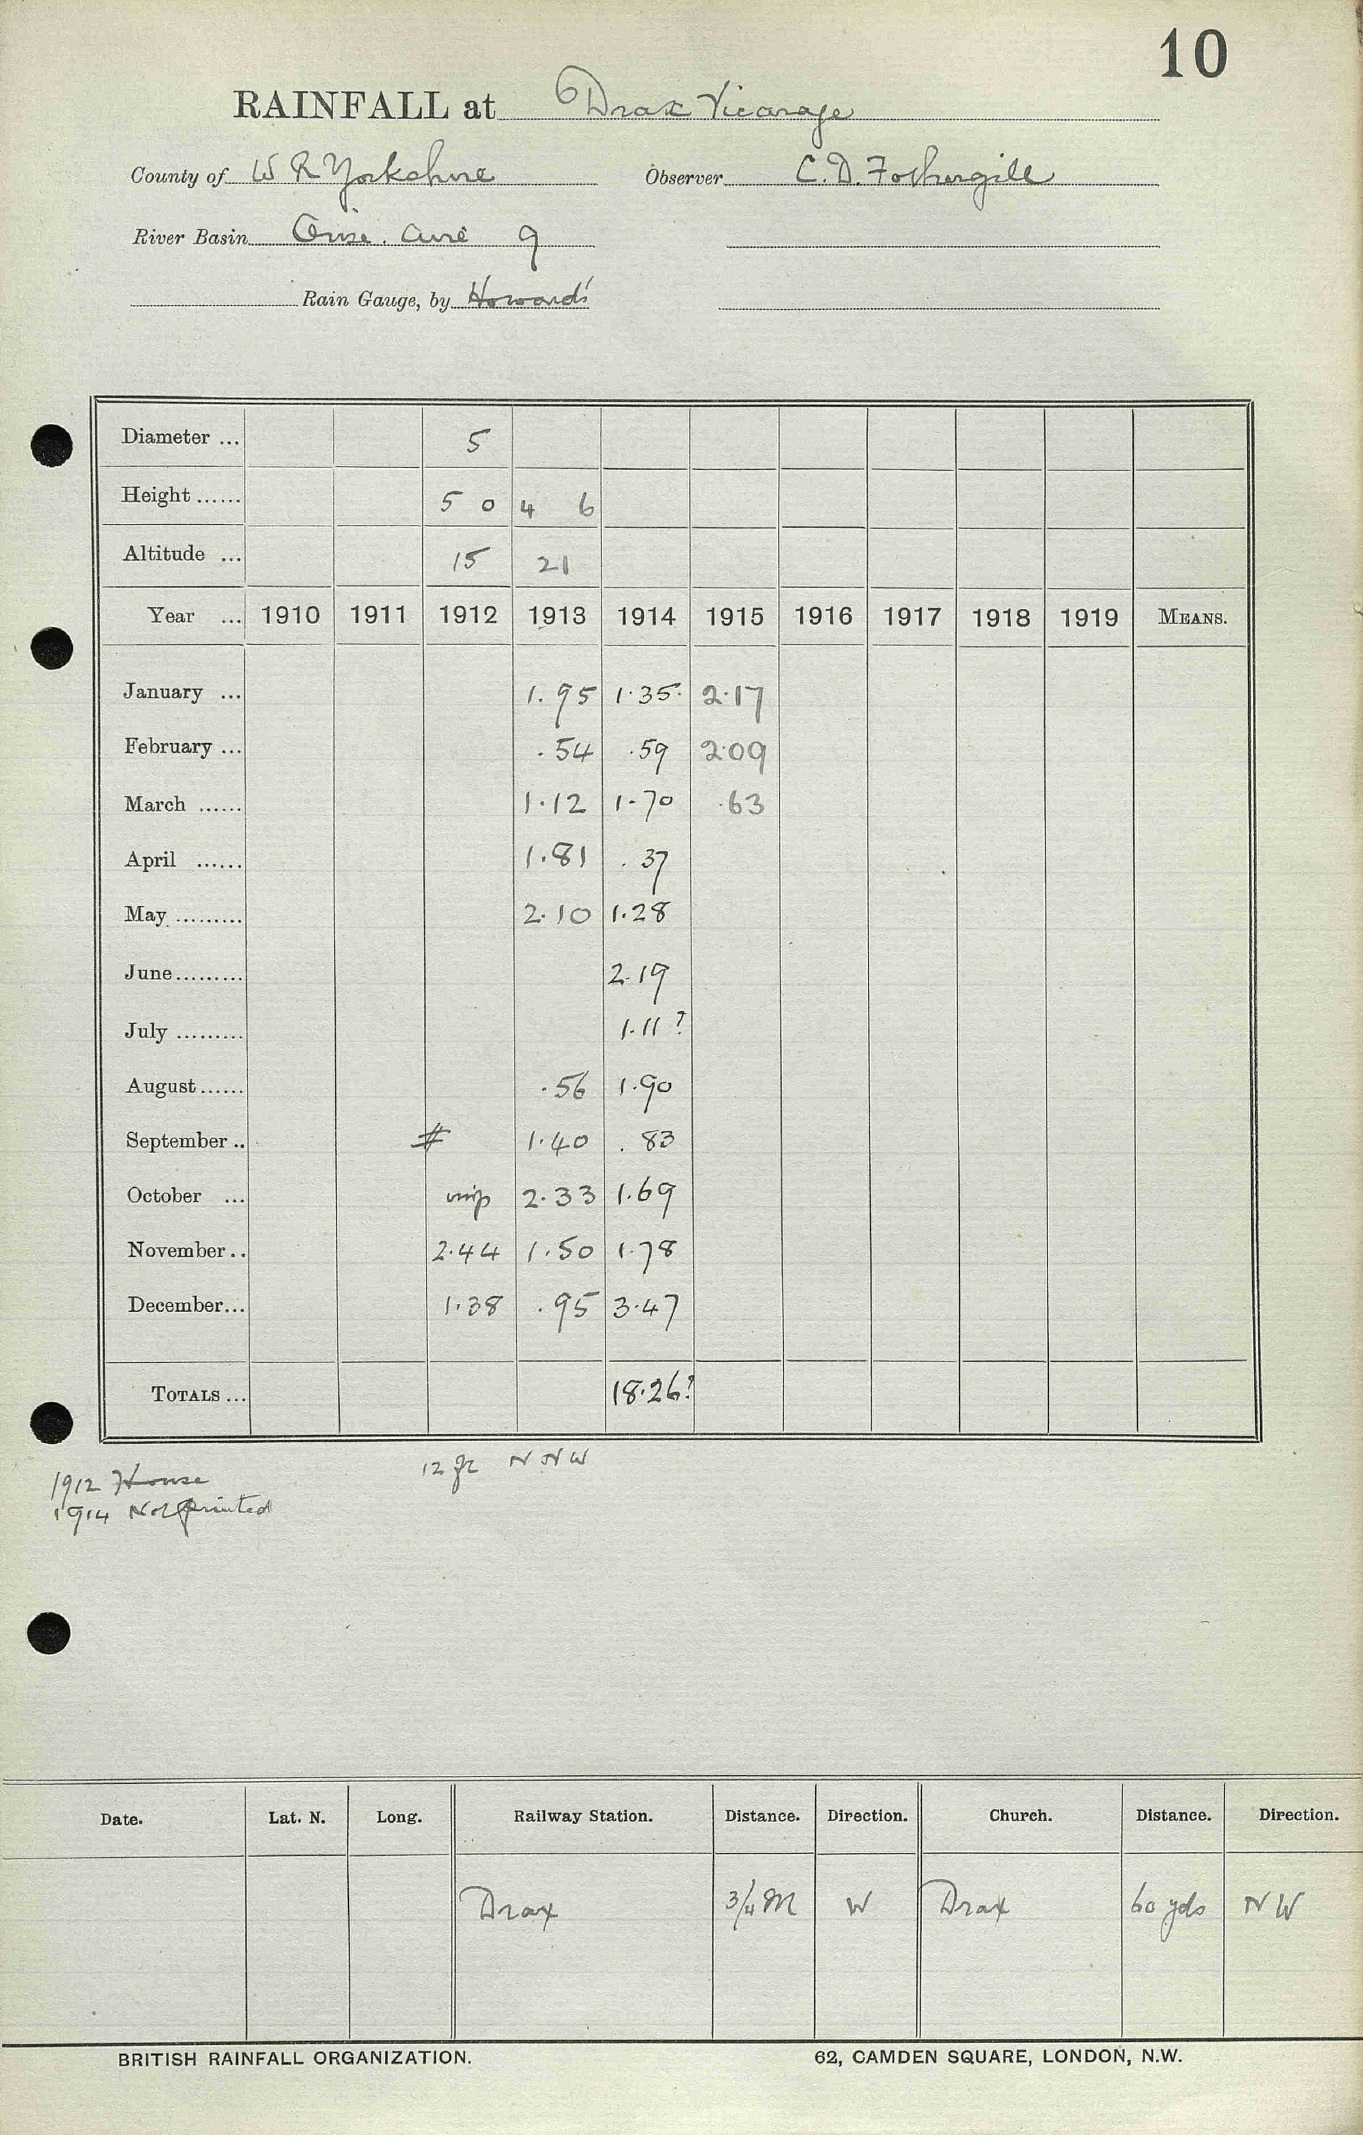 10
RAINFALL at Drax Vicarage
County of W R Yorkshire Observer C.D. Fothergill
River Basin Ouse. Aire 9
Rain Gauge, by Howard's
Diameter ... 5
Height ...... 5 0 4 6
Altitude ... 15 21
Year ... 1910 1911 1912 1913 1914 1915 1916 1917 1918 1919 MEANS.
January ... 1.95 1.35. 2.17
February ... .54 .59 2.09
March ...... 1.12 1.70 .63
April ...... 1.81 .37
May ......... 2.10 1.28
June......... 2.19
July ......... 1.11 ?
August...... .56 1.90
September .. # 1.40 . 83
October ... 2.33 1.69
November .. 2.44 1.50 1.78
December... 1.38 .95 3.47
TOTALS ... 18.26?
12 ft N N W
1912 House
1914 Not printed
Date. Lat. N. Long. Railway Station. Distance. Direction. Church. Distance. Direction.
Drax 3/4 M W Drax 60 yds N W
BRITISH RAINFALL ORGANIZATION. 62, CAMDEN SQUARE, LONDON, N.W.